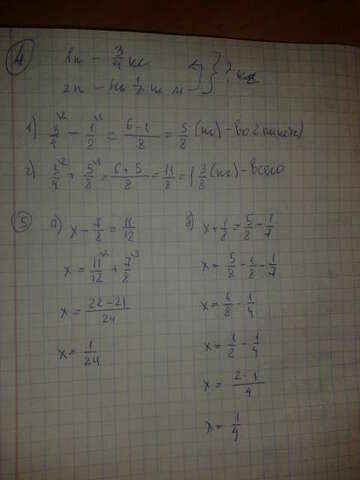 4
1п - 3/4 кг
2п - на 1/8 кг м } ? кг
1) 3/4 - 1/8 = (6-1)/8 = 5/8 (кг) - во 2 пакете
2) 3/4 + 5/8 = (6+5)/8 = 11/8 = 1 3/8 (кг) - всего
5
а) x - 7/8 = 11/12
x = 11/12 + 7/8
x = (22-21)/24
x = 1/24
б) x + 1/8 = 5/8 - 1/7
x = 5/8 - 1/8 - 1/7
x = 4/8 - 1/4
x = 1/2 - 1/4
x = (2-1)/4
x = 1/4